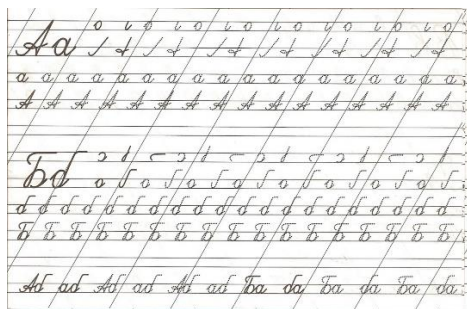 Аа
а а а а а а а а а а а а а а а а а а а
А А А А А А А А А А А А А А А А
Бб
б б б б б б б б б б б б б б б б б б б б
Б Б Б Б Б Б Б Б Б Б Б Б Б Б Б Б Б
Аб аб Аб аб Аб аб Ба ба Ба ба Ба ба